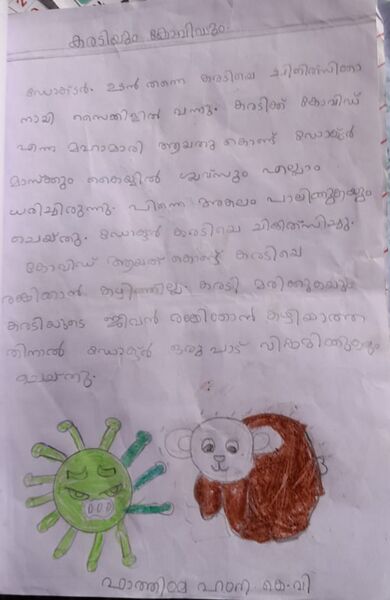 കരടിയും കോവിഡും
ഡോക്ടർ. ഉടൻ തന്നെ കരടിയെ ചികിത്സിക്കാ
നായി സൈക്കിളിൽ വന്നു. കരടിക്ക് കോവിഡ്
എന്ന മഹാമാരി ആയതു കൊണ്ട് ഡോക്ടർ
മാസ്ക്കും കൈയ്യിൽ ഗ്ലൗസും എല്ലാം
ധരിച്ചിരുന്നു. പിന്നെ അകലം പാലിക്കുകയും
ചെയ്തു. ഡോക്ടർ കരടിയെ ചികിത്സിച്ചു.
കോവിഡ് ആയത് കൊണ്ട് കരടിയെ
രക്ഷിക്കാൻ കഴിഞ്ഞില്ല. കരടി മരിക്കുകയും
കരടിയുടെ ജീവൻ രക്ഷിക്കാൻ കഴിയാത്ത
തിനാൽ ഡോക്ടർ ഒരുപാട് വിഷമിക്കുകയും
ചെയ്തു.
ഫാത്തിമ ഹനി കെ.വി